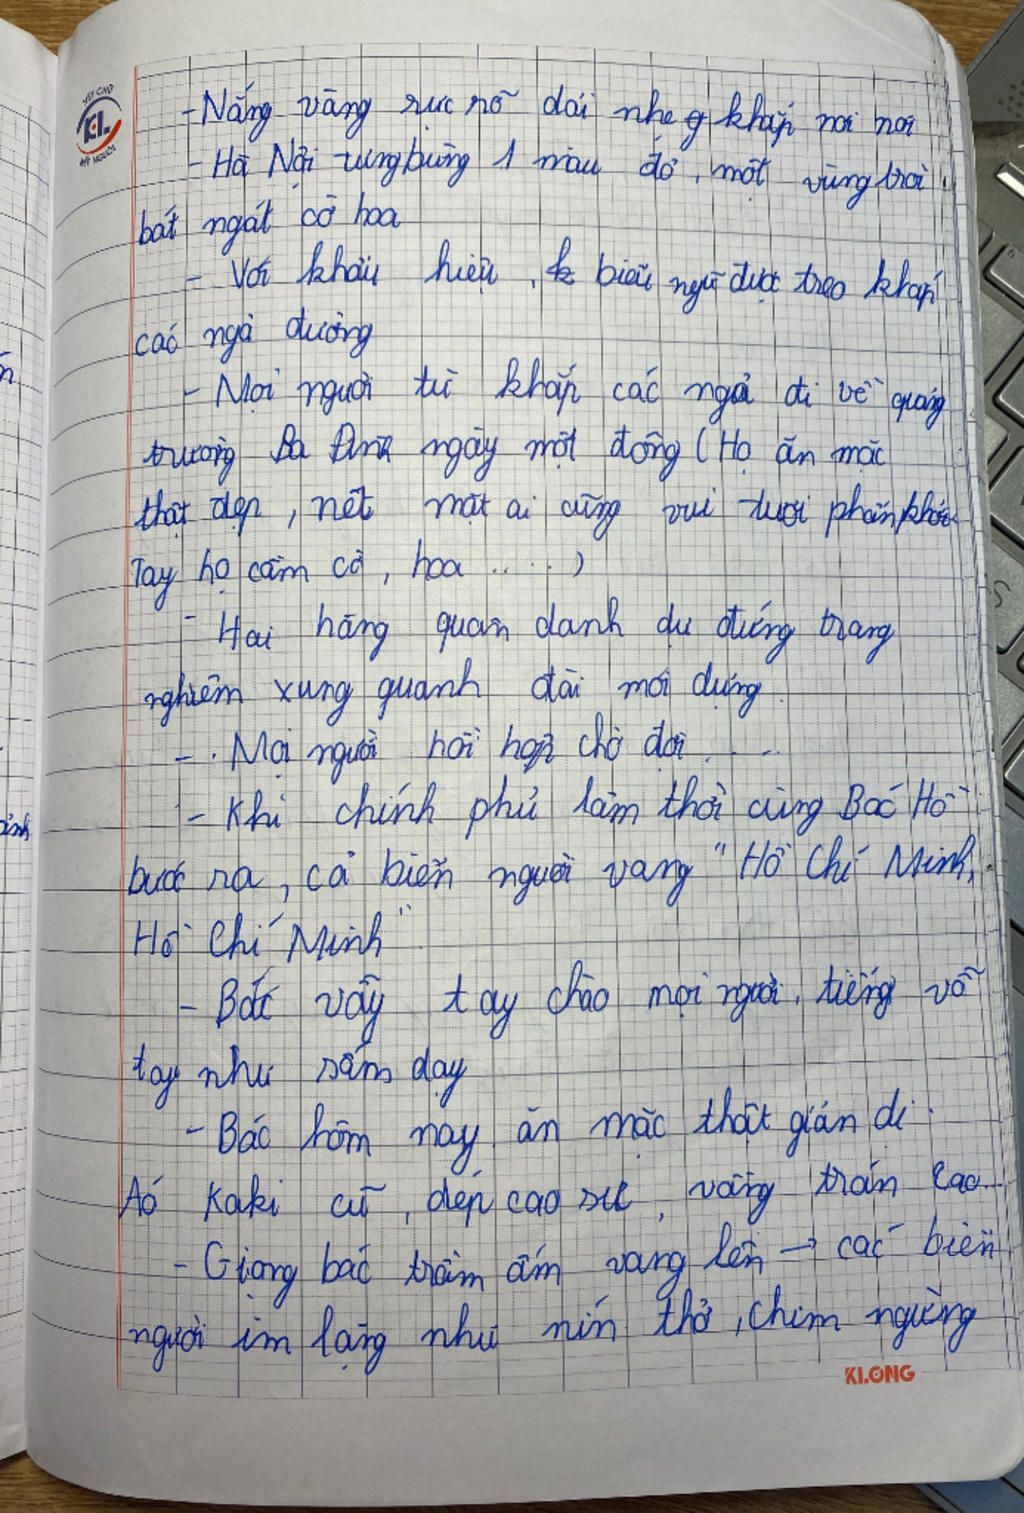 - Nắng vàng rực rỡ dải nhẹ khắp nơi nơi
- Hà Nội tưng bừng 1 màu đỏ, một vùng trời
bát ngát cờ hoa
- Với khẩu hiệu, biểu ngữ được treo khắp
các ngả đường
- Mọi người từ khắp các ngả đi về quảng
trường Ba Đình ngày một đông (Họ ăn mặc
thật đẹp, nét mặt ai cũng vui tươi phấn khởi
Tay họ cầm cờ, hoa .....)
- Hai hàng quân danh dự đứng trang
nghiêm xung quanh đài mới dựng.
- Mọi người hồi hộp chờ đợi ...
- Khi chính phủ lâm thời cùng Bác Hồ
bước ra, cả biển người vang "Hồ Chí Minh,
Hồ Chí Minh"
- Bác vẫy tay chào mọi người, tiếng vỗ
tay như sấm dạy
- Bác hôm nay ăn mặc thật giản dị.
Áo Kaki cũ, dép cao su, vầng trán cao.
- Giọng bác trầm ấm vang lên → cả biển
người im lặng như nín thở, chim ngừng
KLONG
VIỆT CHỮ
KL
ĐẸP NGƯỜI